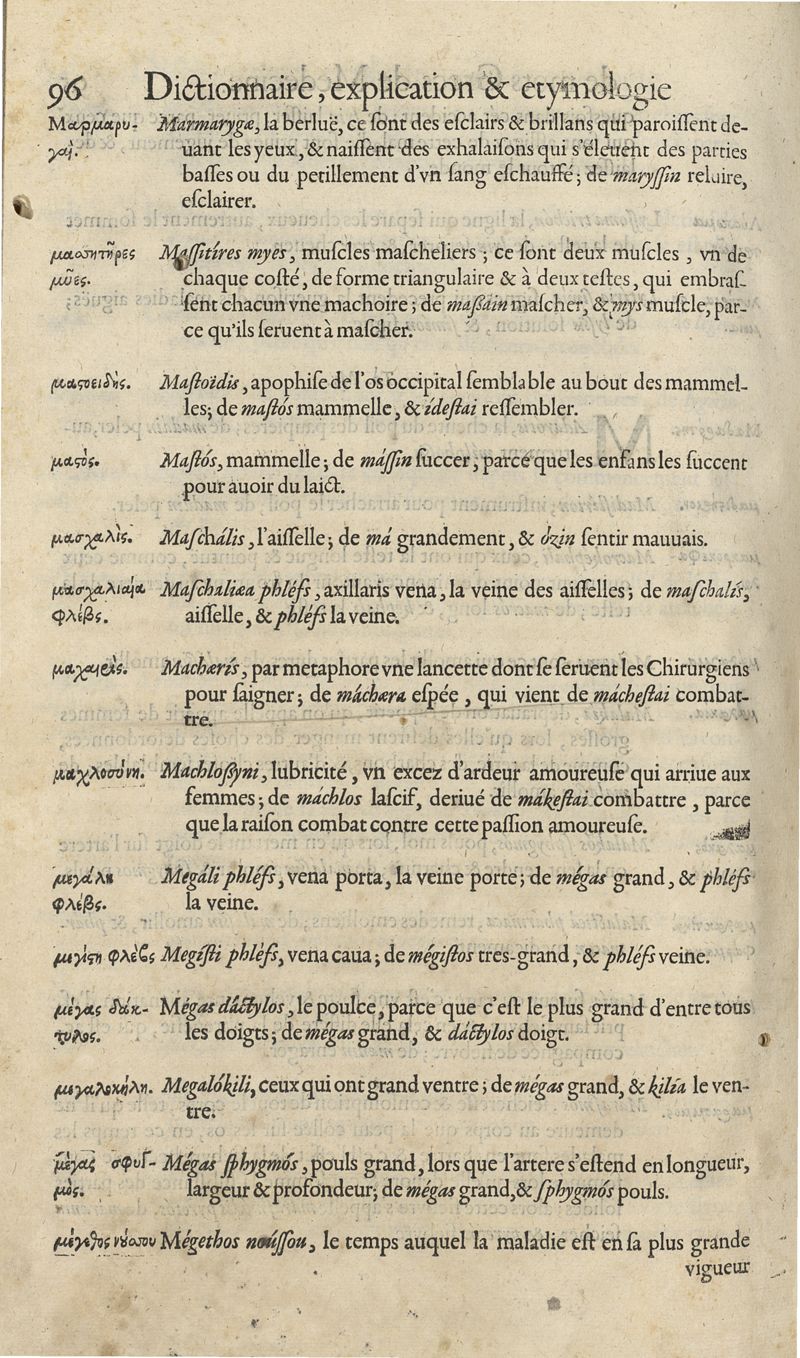 96 Dictionnaire, explication & etymologie
Μαρμαρυ- Marmarygæ, la berluë, ce ſont des eſclairs & brillans qui paroiſſent de-
γαί. uant les yeux, & naiſſent des exhalaiſons qui s'éleuent des parties
baſſes ou du petillement d'vn ſang eſchauffé; de maryſſin reluire,
eſclairer.
μασητῆρες Maſſitíres myes, muſcles maſcheliers; ce ſont deux muſcles, vn de
μῦες. chaque coſté, de forme triangulaire & à deux teſtes, qui embraſ-
ſent chacun vne machoire; de maßáin maſcher, & mys muſcle, par-
ce qu'ils ſeruent à maſcher.
μαςοειδὴς. Maſtoïdis, apophiſe de l'os occipital ſemblable au bout des mammel-
les; de maſtós mammelle, & ídeſtai reſſembler.
μαςὸς. Maſtós, mammelle; de máſſin ſuccer, parce que les enfans les ſuccent
pour auoir du laict.
μασχαλὶς. Maſchális, l'aiſſelle; de má grandement, & ózin ſentir mauuais.
μασχαλιαία Maſchaliæa phléfs, axillaris vena, la veine des aiſſelles; de maſchalís,
φλέβς. aiſſelle, & phléfs la veine.
μαχαιρὶς. Machærís, par metaphore vne lancette dont ſe ſeruent les Chirurgiens
pour ſaigner; de máchæra eſpée, qui vient de mácheſtai combat-
tre.
μαχλοσύνη. Machloſſyni, lubricité, vn excez d'ardeur amoureuſe qui arriue aux
femmes; de máchlos laſcif, deriué de mákeſtai combattre, parce
que la raiſon combat contre cette paſſion amoureuſe.
μεγάλη Megáli phléfs, vena porta, la veine porte; de mégas grand, & phléfs
φλέβς. la veine.
μεγίςη φλέβς Megíſti phléfs, vena caua; de mégiſtos tres-grand, & phléfs veine.
μέγας δάκ- Mégas dáctylos, le poulce, parce que c'eſt le plus grand d'entre tous
τυλος. les doigts; de mégas grand, & dáctylos doigt.
μεγαλοκήλη. Megalókili, ceux qui ont grand ventre; de mégas grand, & kilía le ven-
tre.
μέγας σφυγ- Mégas ſphygmós, pouls grand, lors que l'artere s'eſtend en longueur,
μὸς. largeur & profondeur; de mégas grand, & ſphygmós pouls.
μέγεθος νούσου Mégethos noúſſou, le temps auquel la maladie eſt en ſa plus grande
vigueur